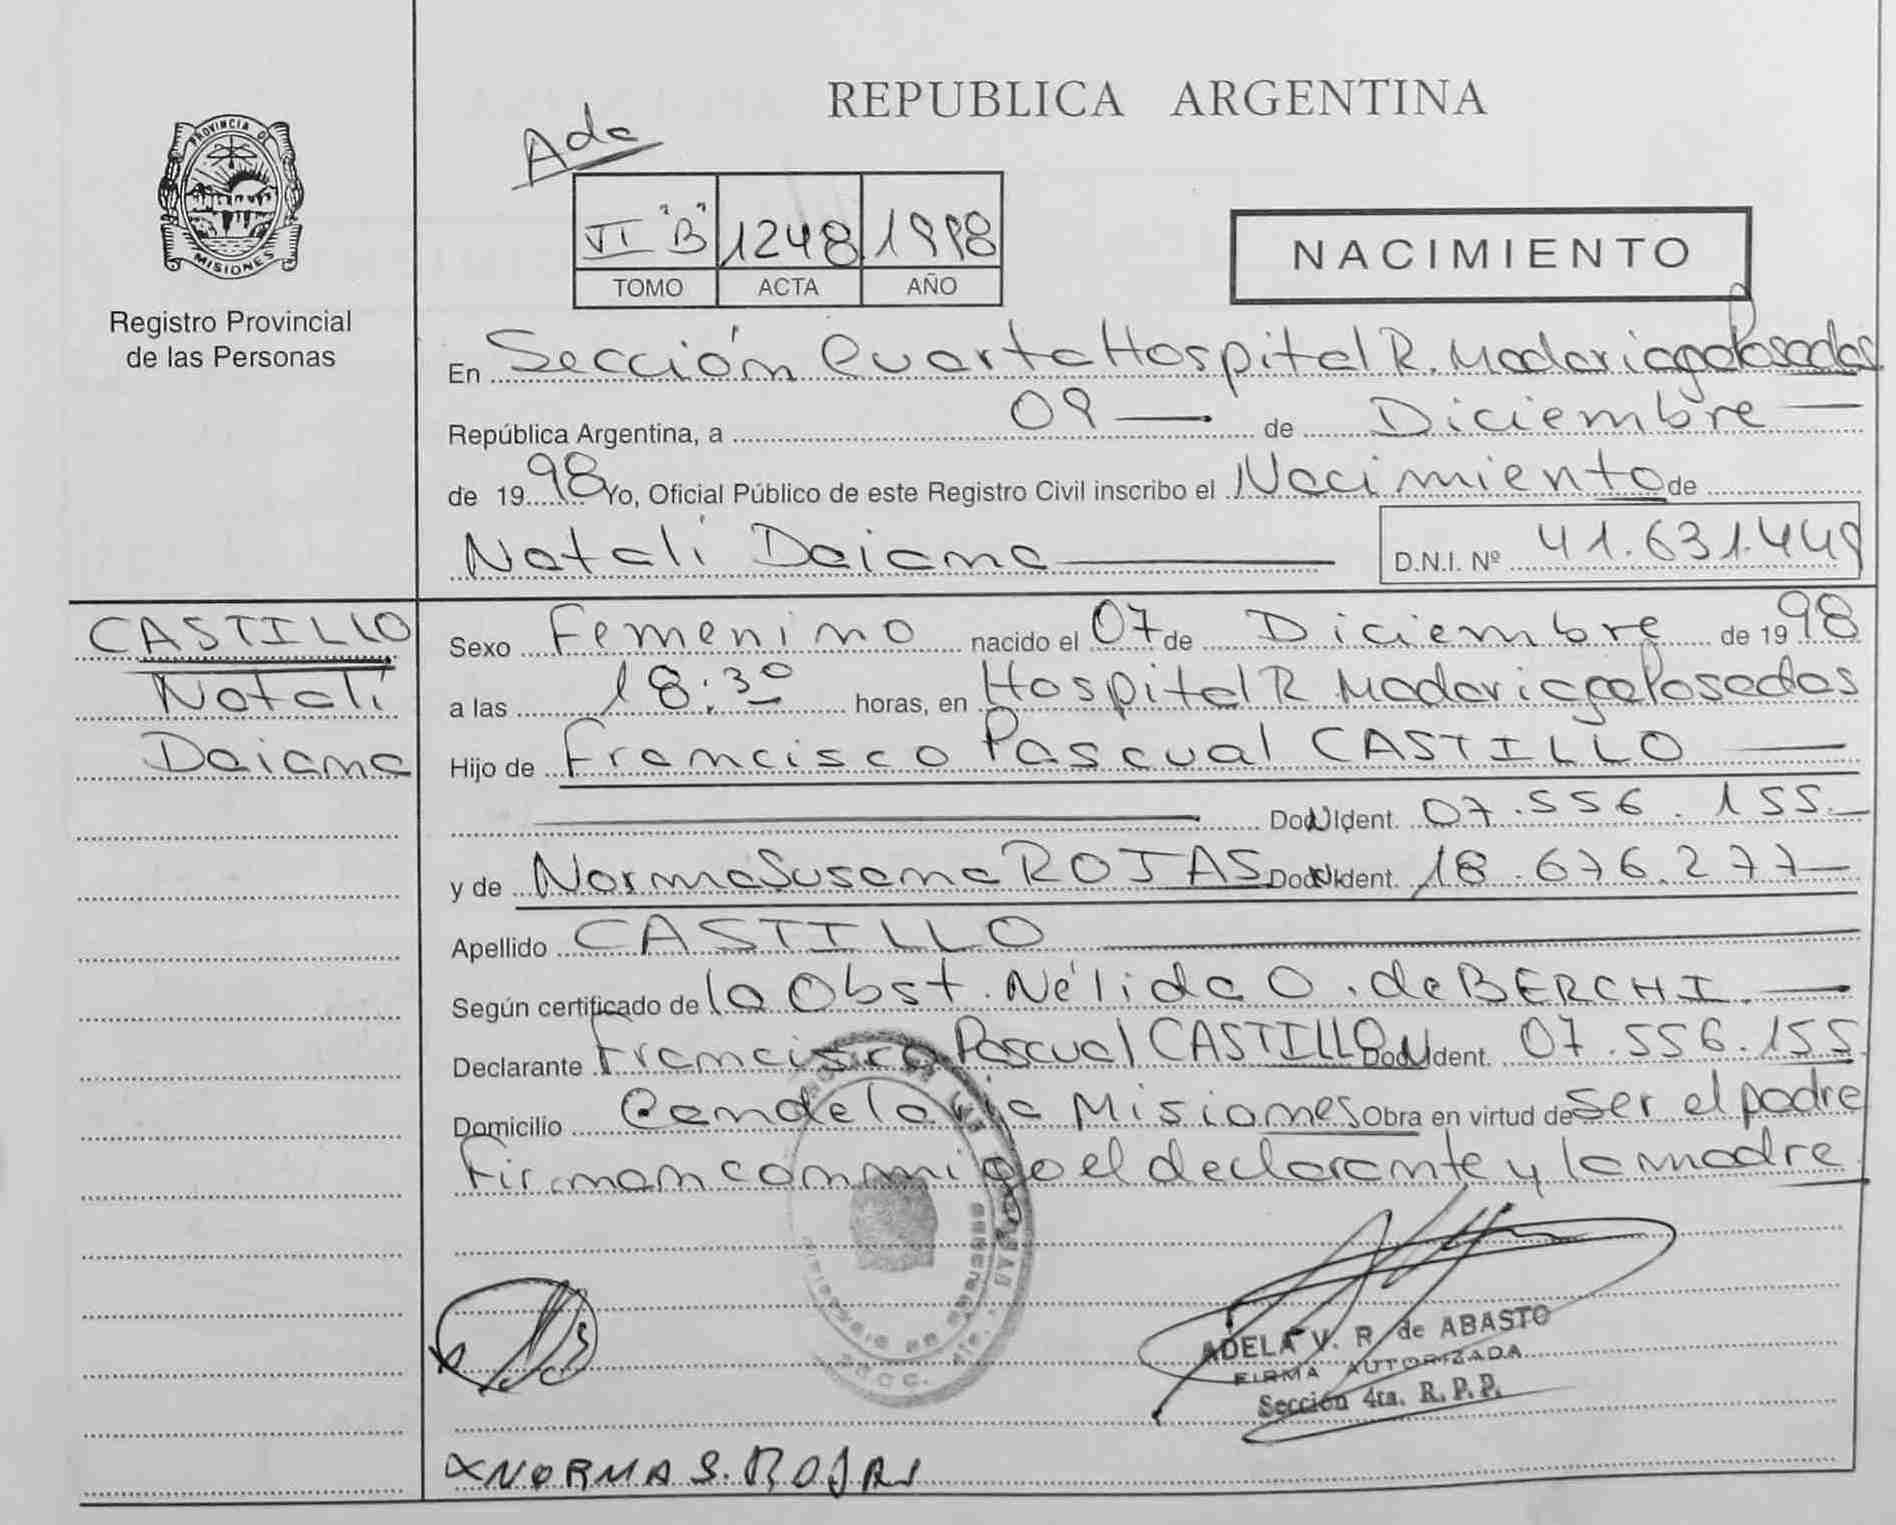 REPUBLICA ARGENTINA
PROVINCIA DE
MISIONES
Registro Provincial
de las Personas
Ada
VI "B" 1248 1998
TOMO ACTA AÑO
NACIMIENTO
En Sección Cuarta Hospital R. Madariaga Posadas
República Argentina, a 09 — de Diciembre —
de 1998 Yo, Oficial Público de este Registro Civil inscribo el Nacimiento de
Natalí Daiana — D.N.I. Nº 41.631.449
CASTILLO
Natalí
Daiana
Sexo Femenino nacido el 07 de Diciembre de 1998
a las 18:30 horas, en Hospital R Madariaga Posadas
Hijo de Francisco Pascual CASTILLO —
— Doc. Ident. 07.556.155.—
y de Norma Susana ROJAS Doc. Ident. 18.676.277—
Apellido CASTILLO —
Según certificado de la Obst. Nélida O. de BERCHI. —
Declarante Francisco Pascual CASTILLO Doc. Ident. 07.556.155.
Domicilio Candelaria Misiones Obra en virtud de ser el padre
Firman conmigo el declarante y la madre.
ADELA V. R. de ABASTO
FIRMA AUTORIZADA
Sección 4ta. R. P. P.
x NORMA S. ROJAS